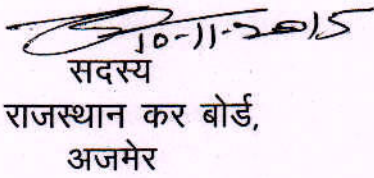 10-11-2015
सदस्य
राजस्थान कर बोर्ड,
अजमेर